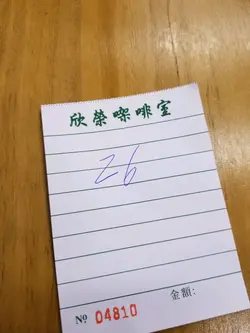 欣榮㗎啡室
26
金額:
No 04810